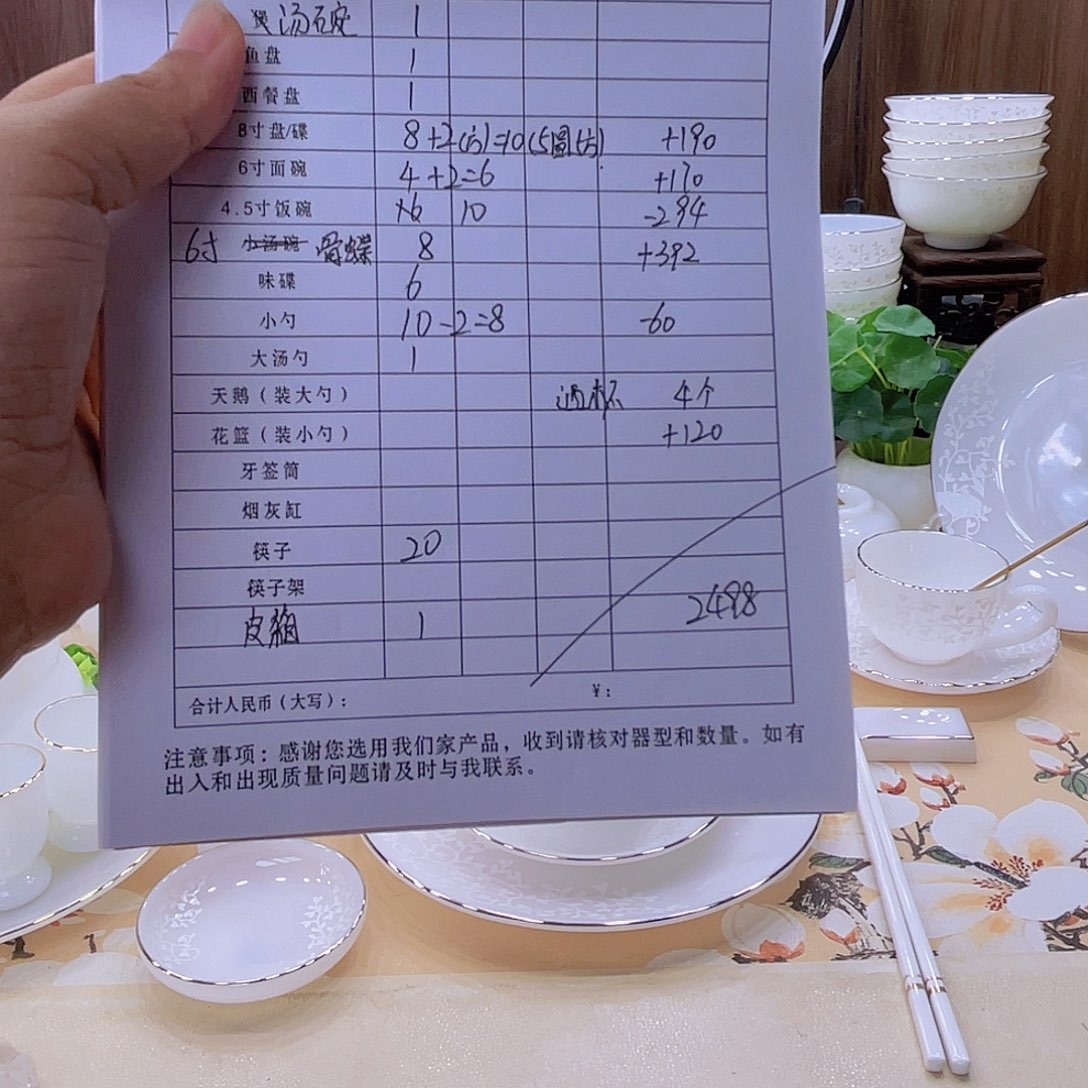 煲 汤碗 1
鱼盘 1
西餐盘 1
8寸盘/碟 8+2(方)=10(5圆5方) +190
6寸面碗 4+2=6 +170
4.5寸饭碗 16 10 -294
6寸 小汤碗 骨蝶 8 +392
味碟 6
小勺 10-2=8 -60
大汤勺 1
天鹅（装大勺） 4个
花篮（装小勺） +120
牙签筒
烟灰缸
筷子 20
筷子架
皮箱 1 2498
合计人民币（大写）： ¥：
注意事项：感谢您选用我们家产品，收到请核对器型和数量。如有
出入和出现质量问题请及时与我联系。